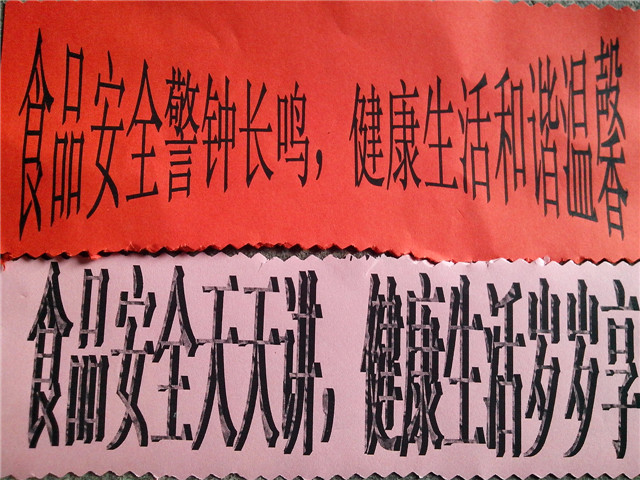 食品安全警钟长鸣，健康生活和谐温馨
食品安全天天讲，健康生活岁岁享